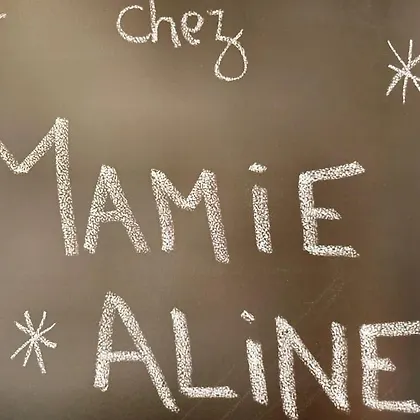 chez
MAMiE
ALiNE